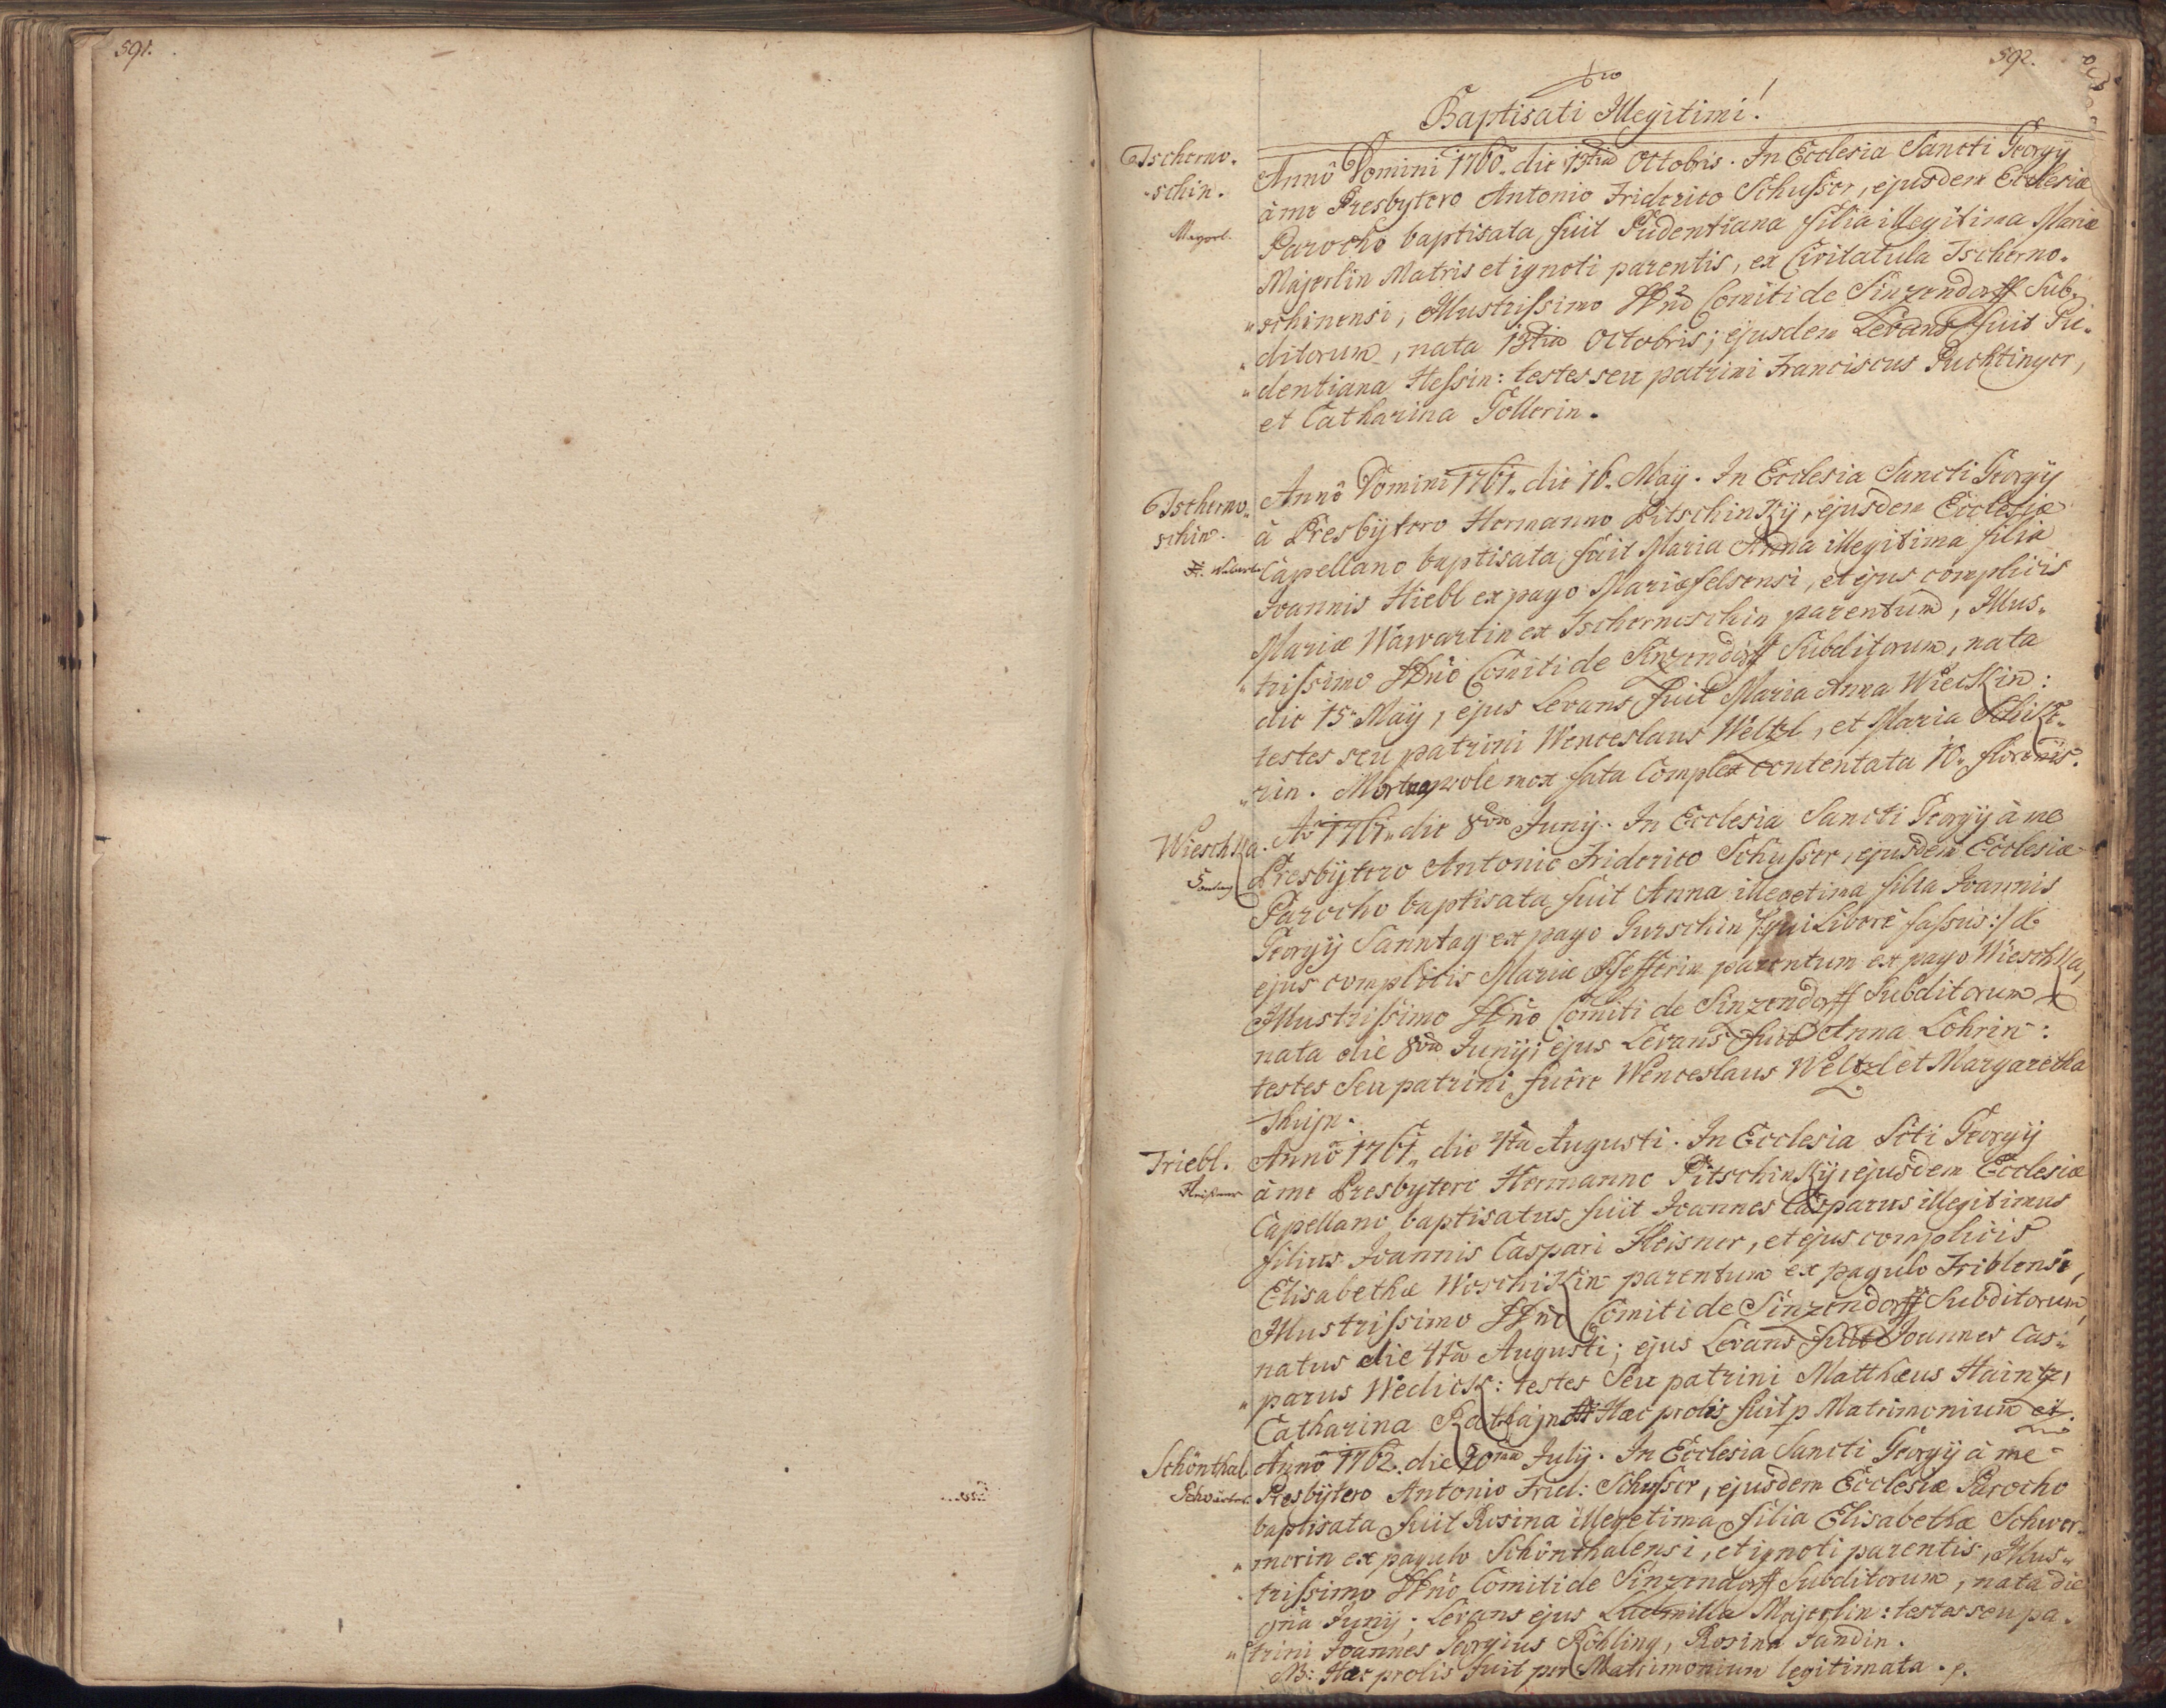 591.
592.
Baptisati Illegitimi!
Tscherno-
-schin.
Mayerl.
Annô Domini 1760. die 13tia Octobris. In Ecclesia Sancti Georgy
à me Presbytero Antonio Friderico Schusser, ejusdem Ecclesiæ
Parocho baptisata fuit Pudentiana filia illegitima Mariæ
Majerlin Matris et ignoti parentis, ex Civitatula Tscherno-
„schinensi, Illustrissimo DDnõ Comiti de Sinzendorff Sub-
„ditorum, nata 13tia Octobris; ejusdem Levans fuit Pu-
„dentiana Hessin: testes seu patrini Franciscus Puchtinger,
et Catharina Gollerin.
Tscherno-
schin.
Annô Domini 1761. die 16. Maÿ. In Ecclesia Sancti Georgÿ
à Presbÿtero Hermanno Pitschinkÿ, ejusdem Ecclesiæ
Capellano baptisata fuit Maria Anna illegitima filia
Joannis Hiebl ex pago Mariæfelsensi, et ejus complicis
Mariæ Wawartin ex Tschernoschin parentum, Illus-
„trissimo DDnõ Comiti de Sinzendorff Subditorum, nata
die 15 Maÿ, ejus Levans fuit Maria Anna Wieckin:
testes seu patrini Wenceslaus Weltzl, et Maria
„rin. prole mox contentata 10. florenis.
Wieschka.
Sontag
Aõ 1761. die 8va Junÿ. In Ecclesia Sancti Georgÿ à me
Presbÿtero Antonio Friderico Schusser, ejusdem Ecclesiæ
Parocho baptisata fuit Anna illegetima filia Joannis
Georgÿ Sanntag ex pago Gurschin /:qui liberè fassus:/ &
ejus complicis Mariæ Pfefferin parentum ex pago Wieschka,
Illustrissimo DDnõ Comiti de Sinzendorff Subditorum
nata die 8va Junÿ; ejus Levans fuit Anna Lohrin:
testes seu patrini fuêre Wenceslaus Weltzl et Margaretha
Triebl.
Fleisner
Annõ 1761. die 4ta Augusti. In Ecclesia Scti Georgÿ
à me Presbytero Hermanno Pitschinkÿ, ejusdem Ecclesiæ
Capellano baptisatus fuit Joannes Casparus illegitimus
filius Joannis Caspari Fleisner, et ejus complicis
Elisabethæ Woschikin parentum ex pagulo Triblensi,
Illustrissimo DDnõ Comiti de Sinzendorff Subditorum,
natus die 4ta Augusti; ejus Levans fuit Joannes Cas-
„parus Wedick: testes seu patrini Matthæus Haintz,
Catharina Hæc prolis fuit p Matrimonium
Schönthal.
Annõ 1762. die 20ma July. In Ecclesia Sancti Georgÿ à me
Presbÿtero Antonio Frid: Schusser, ejusdem Ecclesiæ Parocho
baptisata fuit Rosina illegetima filia Elisabethæ Schwer-
„merin ex pagulo Schönthalensi, et ignoti parentis, Illus-
trissimo DDnõ Comiti de Sinzendorff Subditorum, nata die
Junÿ; Levans ejus Ludmilla Majerlin: testes seu pa-
„trini Joannes Georgius Röhling, Rosina Jandin.
NB: Hæc prolis fuit per Matrimonium legitimata.